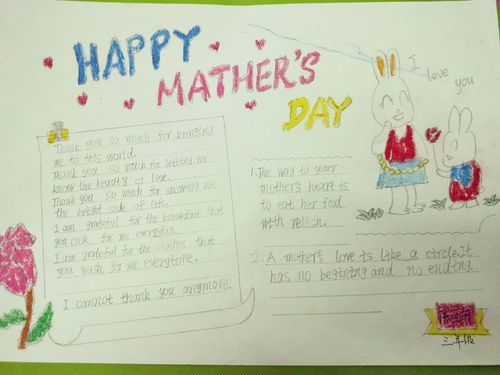 HAPPY
MATHER'S
DAY
I love you
Thank you so much for
me to this world.
Thank you so much for letting me
know the beauty of love.
Thank you so much for showing me
the bright side of life.
I am grateful for the breakfast that
you cook for me everyday.
I am grateful for the clothes that
you wash for me everytime.
I cannot thank you anymore.
1. The way to your
mother's heart is
to eat her food
with relish.
2. A mother's love is like a circle. It
has no begining and no ending.
三年级